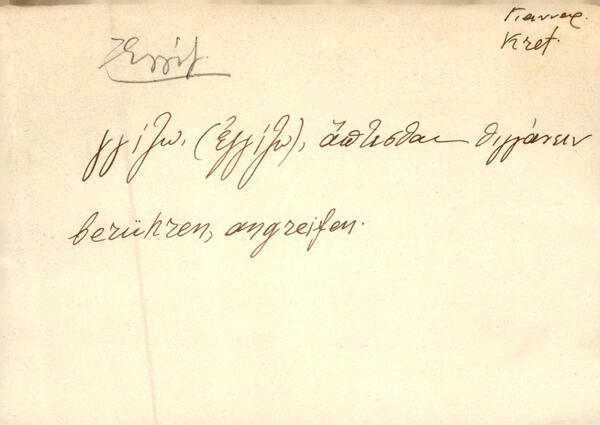 Γιανναρ.
Kret.
γγίζω, (ἐγγίζω), ἅπτεσθαι θιγγάνειν
berühren, angreifen.